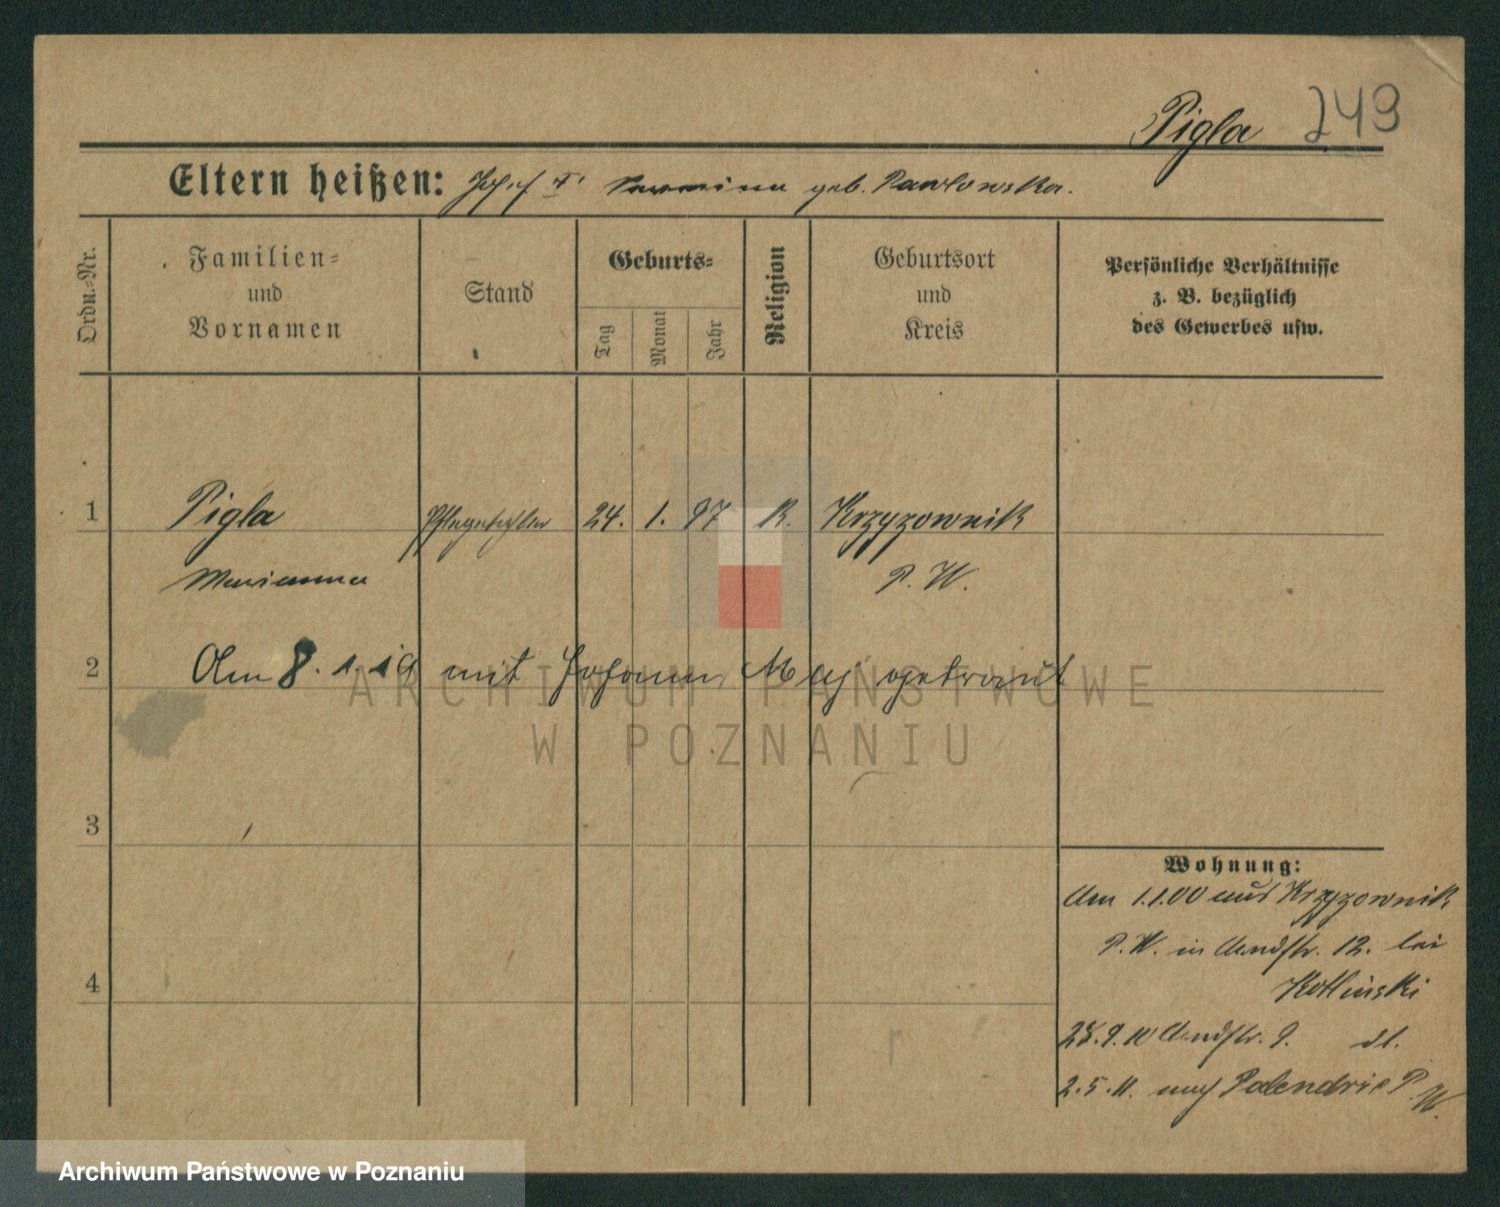 Pigla 249
Eltern heißen: Josef geb. Pawlowska.
Ordn.-Nr.
Familien-
und
Vornamen
Stand
Geburts-
Tag
Monat
Jahr
Religion
Geburtsort
und
Kreis
Persönliche Verhältnisse
z. B. bezüglich
des Gewerbes usw.
1 Pigla 24. 1. 97 K. Krzyzownik
Marianna P. W.
2 Am 8. 1. 19 mit Johann Maj getraut
ARCHIWUM PAŃSTWOWE
W POZNANIU
3
Wohnung:
Am 1.1.00 aus Krzyzownik
P. W. in 12. bei
Kotlinski
4
28.9.10 9. dl.
2.5.11. nach Polendrie P. W.
Archiwum Państwowe w Poznaniu